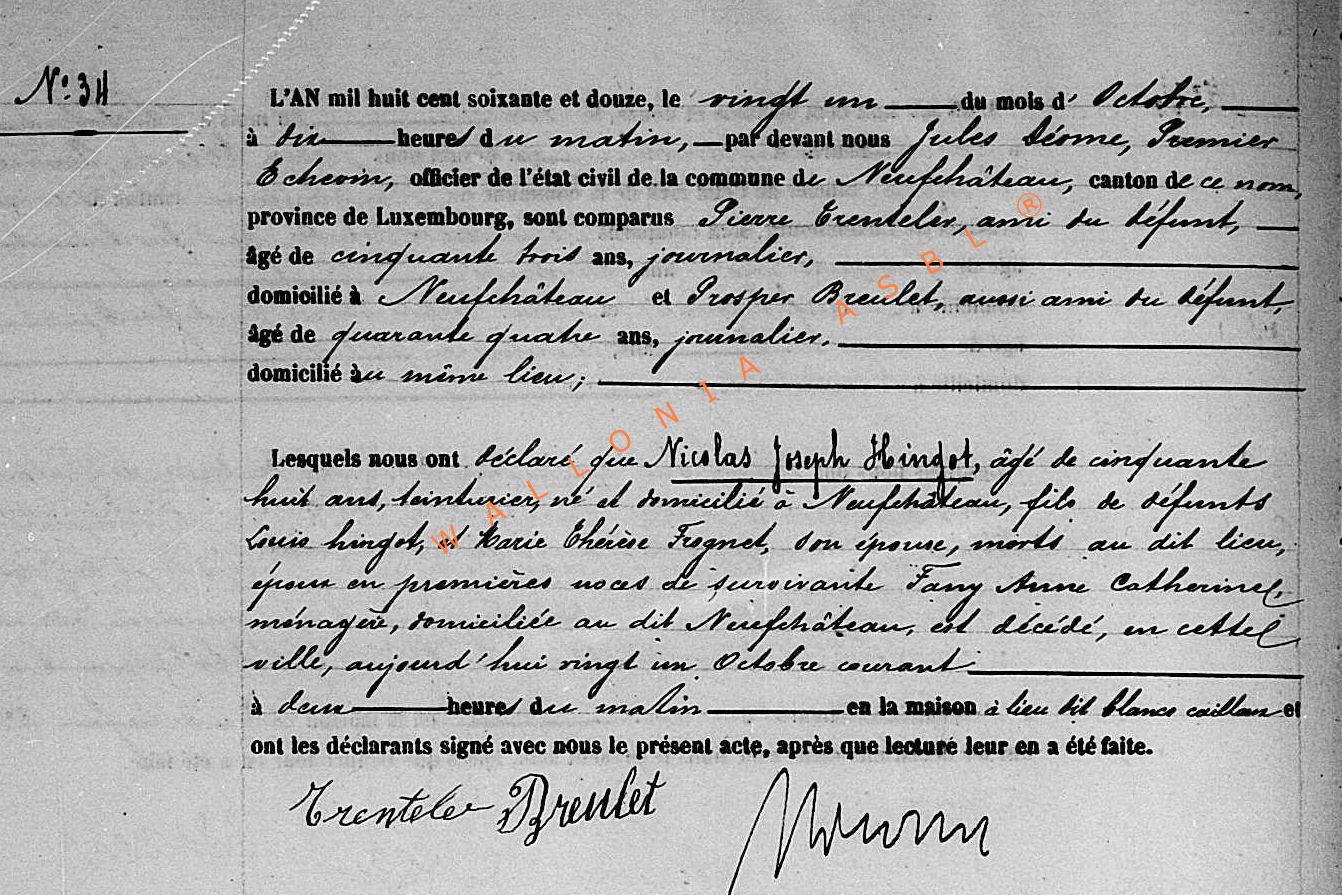 N° 34
L'AN mil huit cent soixante et douze, le vingt un du mois d' Octobre,
à dix heures du matin, par devant nous Jules Déome, Premier
Echevin, officier de l'état civil de la commune de Neufchâteau, canton de ce nom,
province de Luxembourg, sont comparus Pierre Trenteler, ami du défunt,
âgé de cinquante trois ans, journalier,
domicilié à Neufchâteau et Prosper Breulet, aussi ami du défunt,
âgé de quarante quatre ans, journalier,
domicilié au même lieu;
Lesquels nous ont déclaré que Nicolas Joseph Hingot, âgé de cinquante
huit ans, teinturier, né et domicilié à Neufchâteau, fils de défunts
Louis hingot, et Marie Thérèse Frognet, son épouse, morts au dit lieu,
époux en premières noces de survivante Fany Anne Catherine,
ménagère, domiciliée au dit Neufchâteau, est décédé, en cette
ville, aujourd'hui vingt un Octobre courant
à deux heures du matin en la maison à lieu dit blancs cailloux et
ont les déclarants signé avec nous le présent acte, après que lecture leur en a été faite.
Trenteler Breulet
WALLONIA ASBL ®